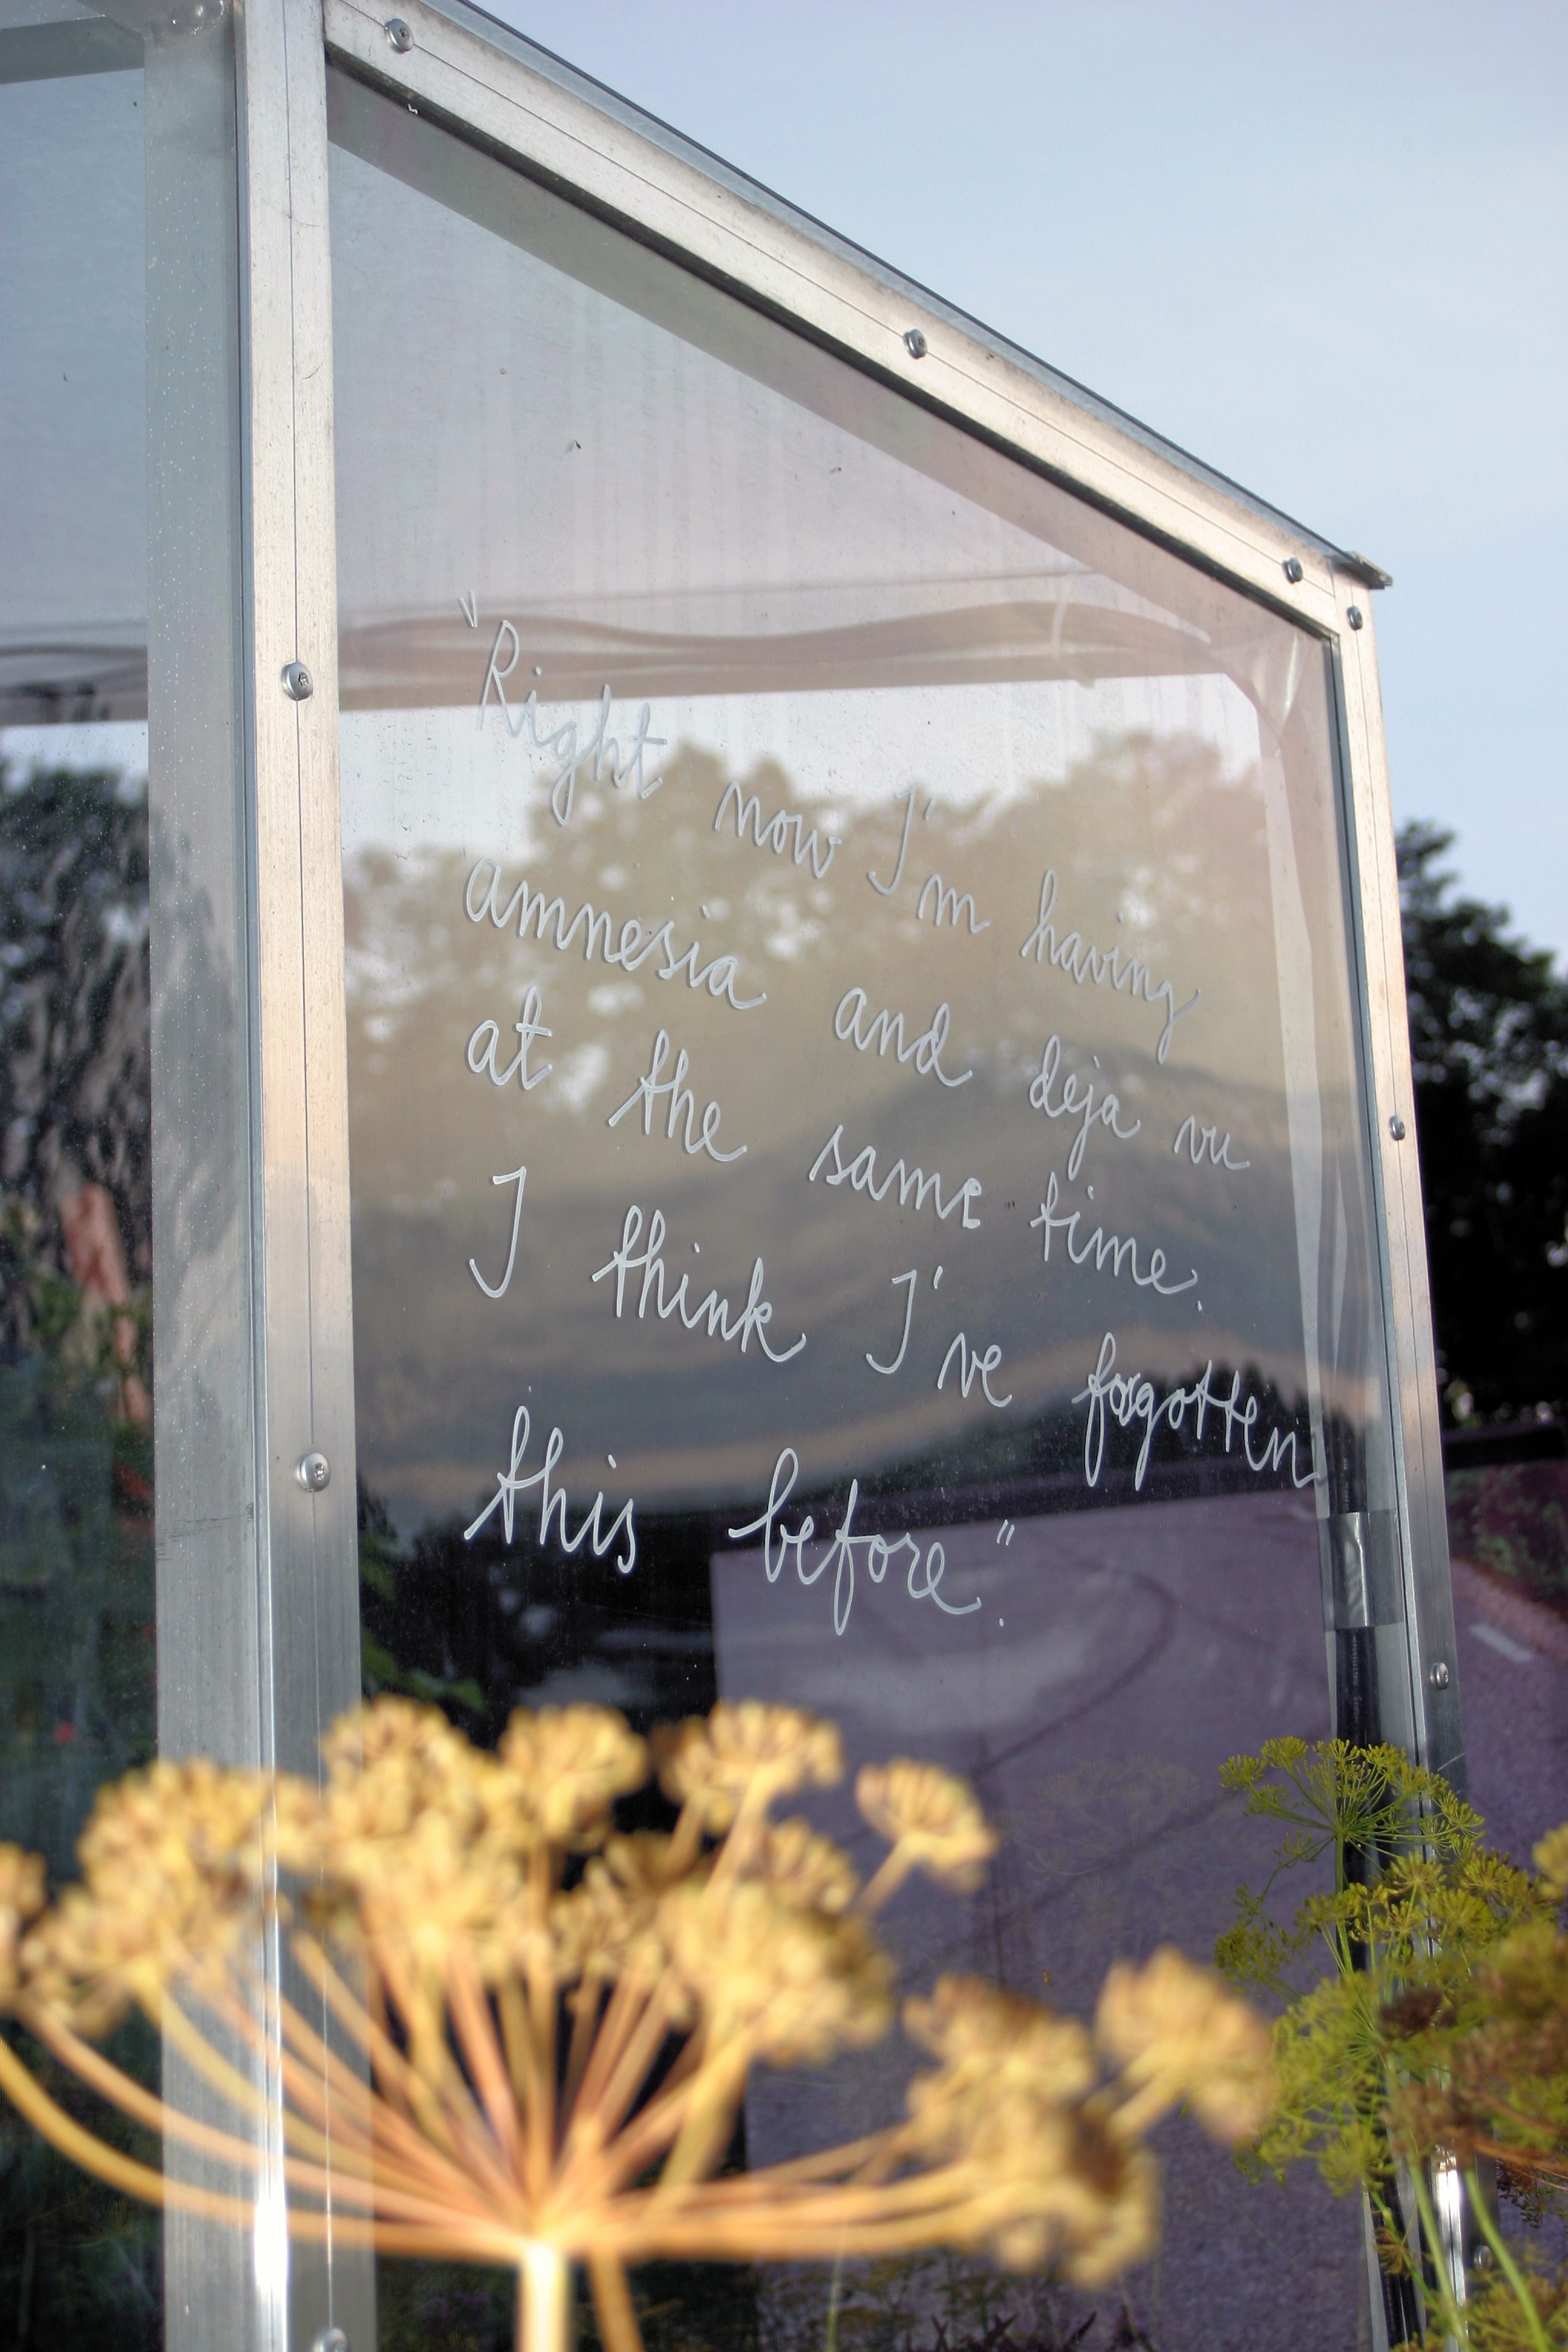 "Right now I'm having
amnesia and deja vu
at the same time.
I think I've forgotten
this before".